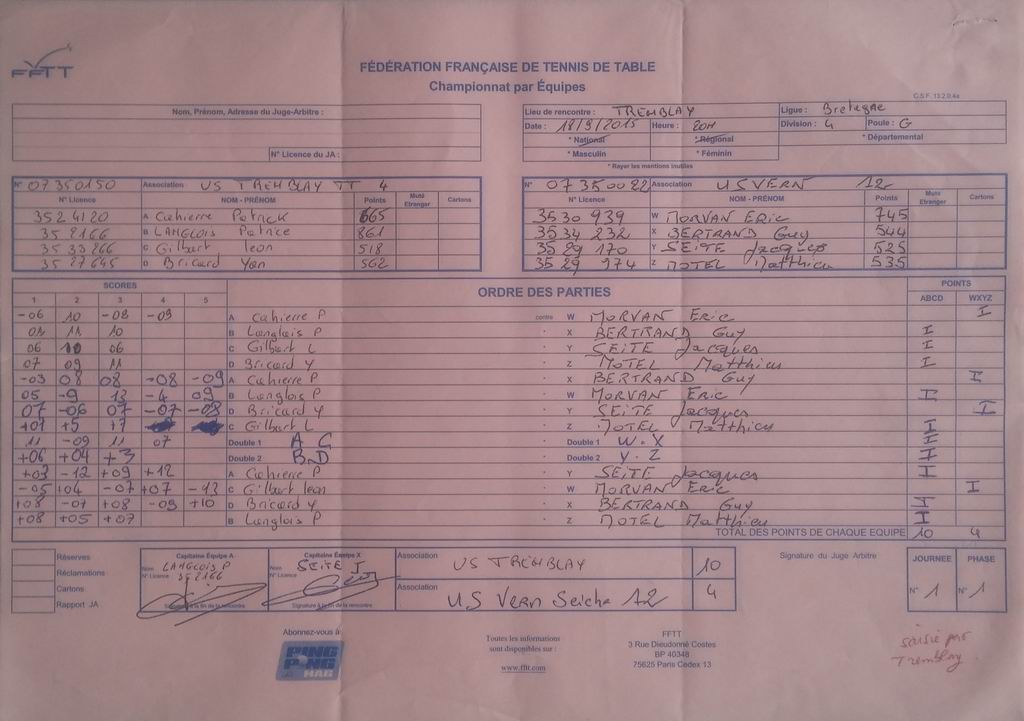 FFTT
FÉDÉRATION FRANÇAISE DE TENNIS DE TABLE
Championnat par Équipes
C.S.F. 13.2.0.4a
Nom, Prénom, Adresse du Juge-Arbitre :
N° Licence du JA :
Lieu de rencontre : TREMBLAY Ligue : Bretagne
Date : 18/9/2015 Heure : 20H Division : 4 Poule : G
* National * Régional * Départemental
* Masculin * Féminin
* Rayer les mentions inutiles
N° 07350150 Association US TREMBLAY TT 4
N° Licence NOM - PRÉNOM Points Muté Etranger Cartons
3524120 A Cahierre Patrick 665
352166 B LANGLOIS Patrice 861
3533266 C Gilbert leon 518
3527645 D Bricard Yan 562
N° 07350022 Association US VERN 12
N° Licence NOM - PRÉNOM Points Muté Etranger Cartons
3530 939 W MORVAN Eric 745
3534 232 X BERTRAND Guy 544
3529 170 Y SEITE Jacques 525
3529 974 Z MOTEL Matthieu 535
SCORES ORDRE DES PARTIES POINTS
1 2 3 4 5 ABCD WXYZ
-06 10 -08 -09 A Cahierre P contre W MORVAN Eric I
01 11 10 B Langlois P X BERTRAND Guy I
06 10 06 C Gilbert L Y SEITE Jacques I
07 09 11 D Bricard Y Z MOTEL Matthieu I
-03 08 08 -08 -09 A Cahierre P X BERTRAND Guy I
05 -9 13 -4 09 B Langlois P W MORVAN Eric I
07 -06 07 -07 -08 D Bricard Y Y SEITE Jacques I
+01 +5 +7 C Gilbert L Z MOTEL Matthieu I
11 -09 11 07 Double 1 A C Double 1 W-X I
+06 +04 +3 Double 2 B D Double 2 Y-Z I
+03 -12 +09 +12 A Cahierre P Y SEITE Jacques I
-05 +04 -07 +07 -13 C Gilbert leon W MORVAN Eric I
+08 -01 +08 -09 +10 D Bricard Y X BERTRAND Guy I
+08 +05 +07 B Langlois P Z MOTEL Matthieu I
TOTAL DES POINTS DE CHAQUE EQUIPE 10 4
Réserves
Réclamations
Cartons
Rapport JA
Capitaine Équipe A
Nom LANGLOIS P
N° Licence 352166
Signature à la fin de la rencontre
Capitaine Équipe X
Nom SEITE J
N° Licence
Signature à la fin de la rencontre
Association US TREMBLAY 10
Association US Vern Seiche 12 4
Signature du Juge Arbitre
JOURNEE PHASE
N° 1 N° 1
Abonnez-vous à
PING PONG MAG
Toutes les informations
sont disponibles sur :
www.fftt.com
FFTT
3 Rue Dieudonné Costes
BP 40348
75625 Paris Cedex 13
saisie par
Tremblay